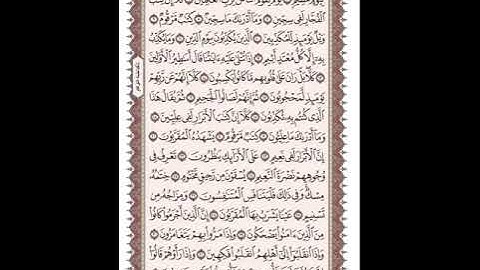 ٱلْفُجَّارِ لَفِى سِجِّينٍ ۝ وَمَآ أَدْرَىٰكَ مَا سِجِّينٌ ۝ كِتَٰبٌ مَّرْقُومٌ ۝
وَيْلٌ يَوْمَئِذٍ لِّلْمُكَذِّبِينَ ۝ ٱلَّذِينَ يُكَذِّبُونَ بِيَوْمِ ٱلدِّينِ ۝ وَمَا يُكَذِّبُ
بِهِۦٓ إِلَّا كُلُّ مُعْتَدٍ أَثِيمٍ ۝ إِذَا تُتْلَىٰ عَلَيْهِ ءَايَٰتُنَا قَالَ أَسَٰطِيرُ ٱلْأَوَّلِينَ
كَلَّا بَلْ رَانَ عَلَىٰ قُلُوبِهِم مَّا كَانُوا۟ يَكْسِبُونَ ۝ كَلَّآ إِنَّهُمْ عَن رَّبِّهِمْ
يَوْمَئِذٍ لَّمَحْجُوبُونَ ۝ ثُمَّ إِنَّهُمْ لَصَالُوا۟ ٱلْجَحِيمِ ۝ ثُمَّ يُقَالُ هَٰذَا
ٱلَّذِى كُنتُم بِهِۦ تُكَذِّبُونَ ۝ كَلَّآ إِنَّ كِتَٰبَ ٱلْأَبْرَارِ لَفِى عِلِّيِّينَ ۝
وَمَآ أَدْرَىٰكَ مَا عِلِّيُّونَ ۝ كِتَٰبٌ مَّرْقُومٌ ۝ يَشْهَدُهُ ٱلْمُقَرَّبُونَ ۝
إِنَّ ٱلْأَبْرَارَ لَفِى نَعِيمٍ ۝ عَلَى ٱلْأَرَآئِكِ يَنظُرُونَ ۝ تَعْرِفُ فِى
وُجُوهِهِمْ نَضْرَةَ ٱلنَّعِيمِ ۝ يُسْقَوْنَ مِن رَّحِيقٍ مَّخْتُومٍ ۝ خِتَٰمُهُۥ
مِسْكٌ وَفِى ذَٰلِكَ فَلْيَتَنَافَسِ ٱلْمُتَنَٰفِسُونَ ۝ وَمِزَاجُهُۥ مِن
تَسْنِيمٍ ۝ عَيْنًا يَشْرَبُ بِهَا ٱلْمُقَرَّبُونَ ۝ إِنَّ ٱلَّذِينَ أَجْرَمُوا۟ كَانُوا۟
مِنَ ٱلَّذِينَ ءَامَنُوا۟ يَضْحَكُونَ ۝ وَإِذَا مَرُّوا۟ بِهِمْ يَتَغَامَزُونَ ۝
وَإِذَا ٱنقَلَبُوٓا۟ إِلَىٰٓ أَهْلِهِمُ ٱنقَلَبُوا۟ فَكِهِينَ ۝ وَإِذَا رَأَوْهُمْ قَالُوٓا۟